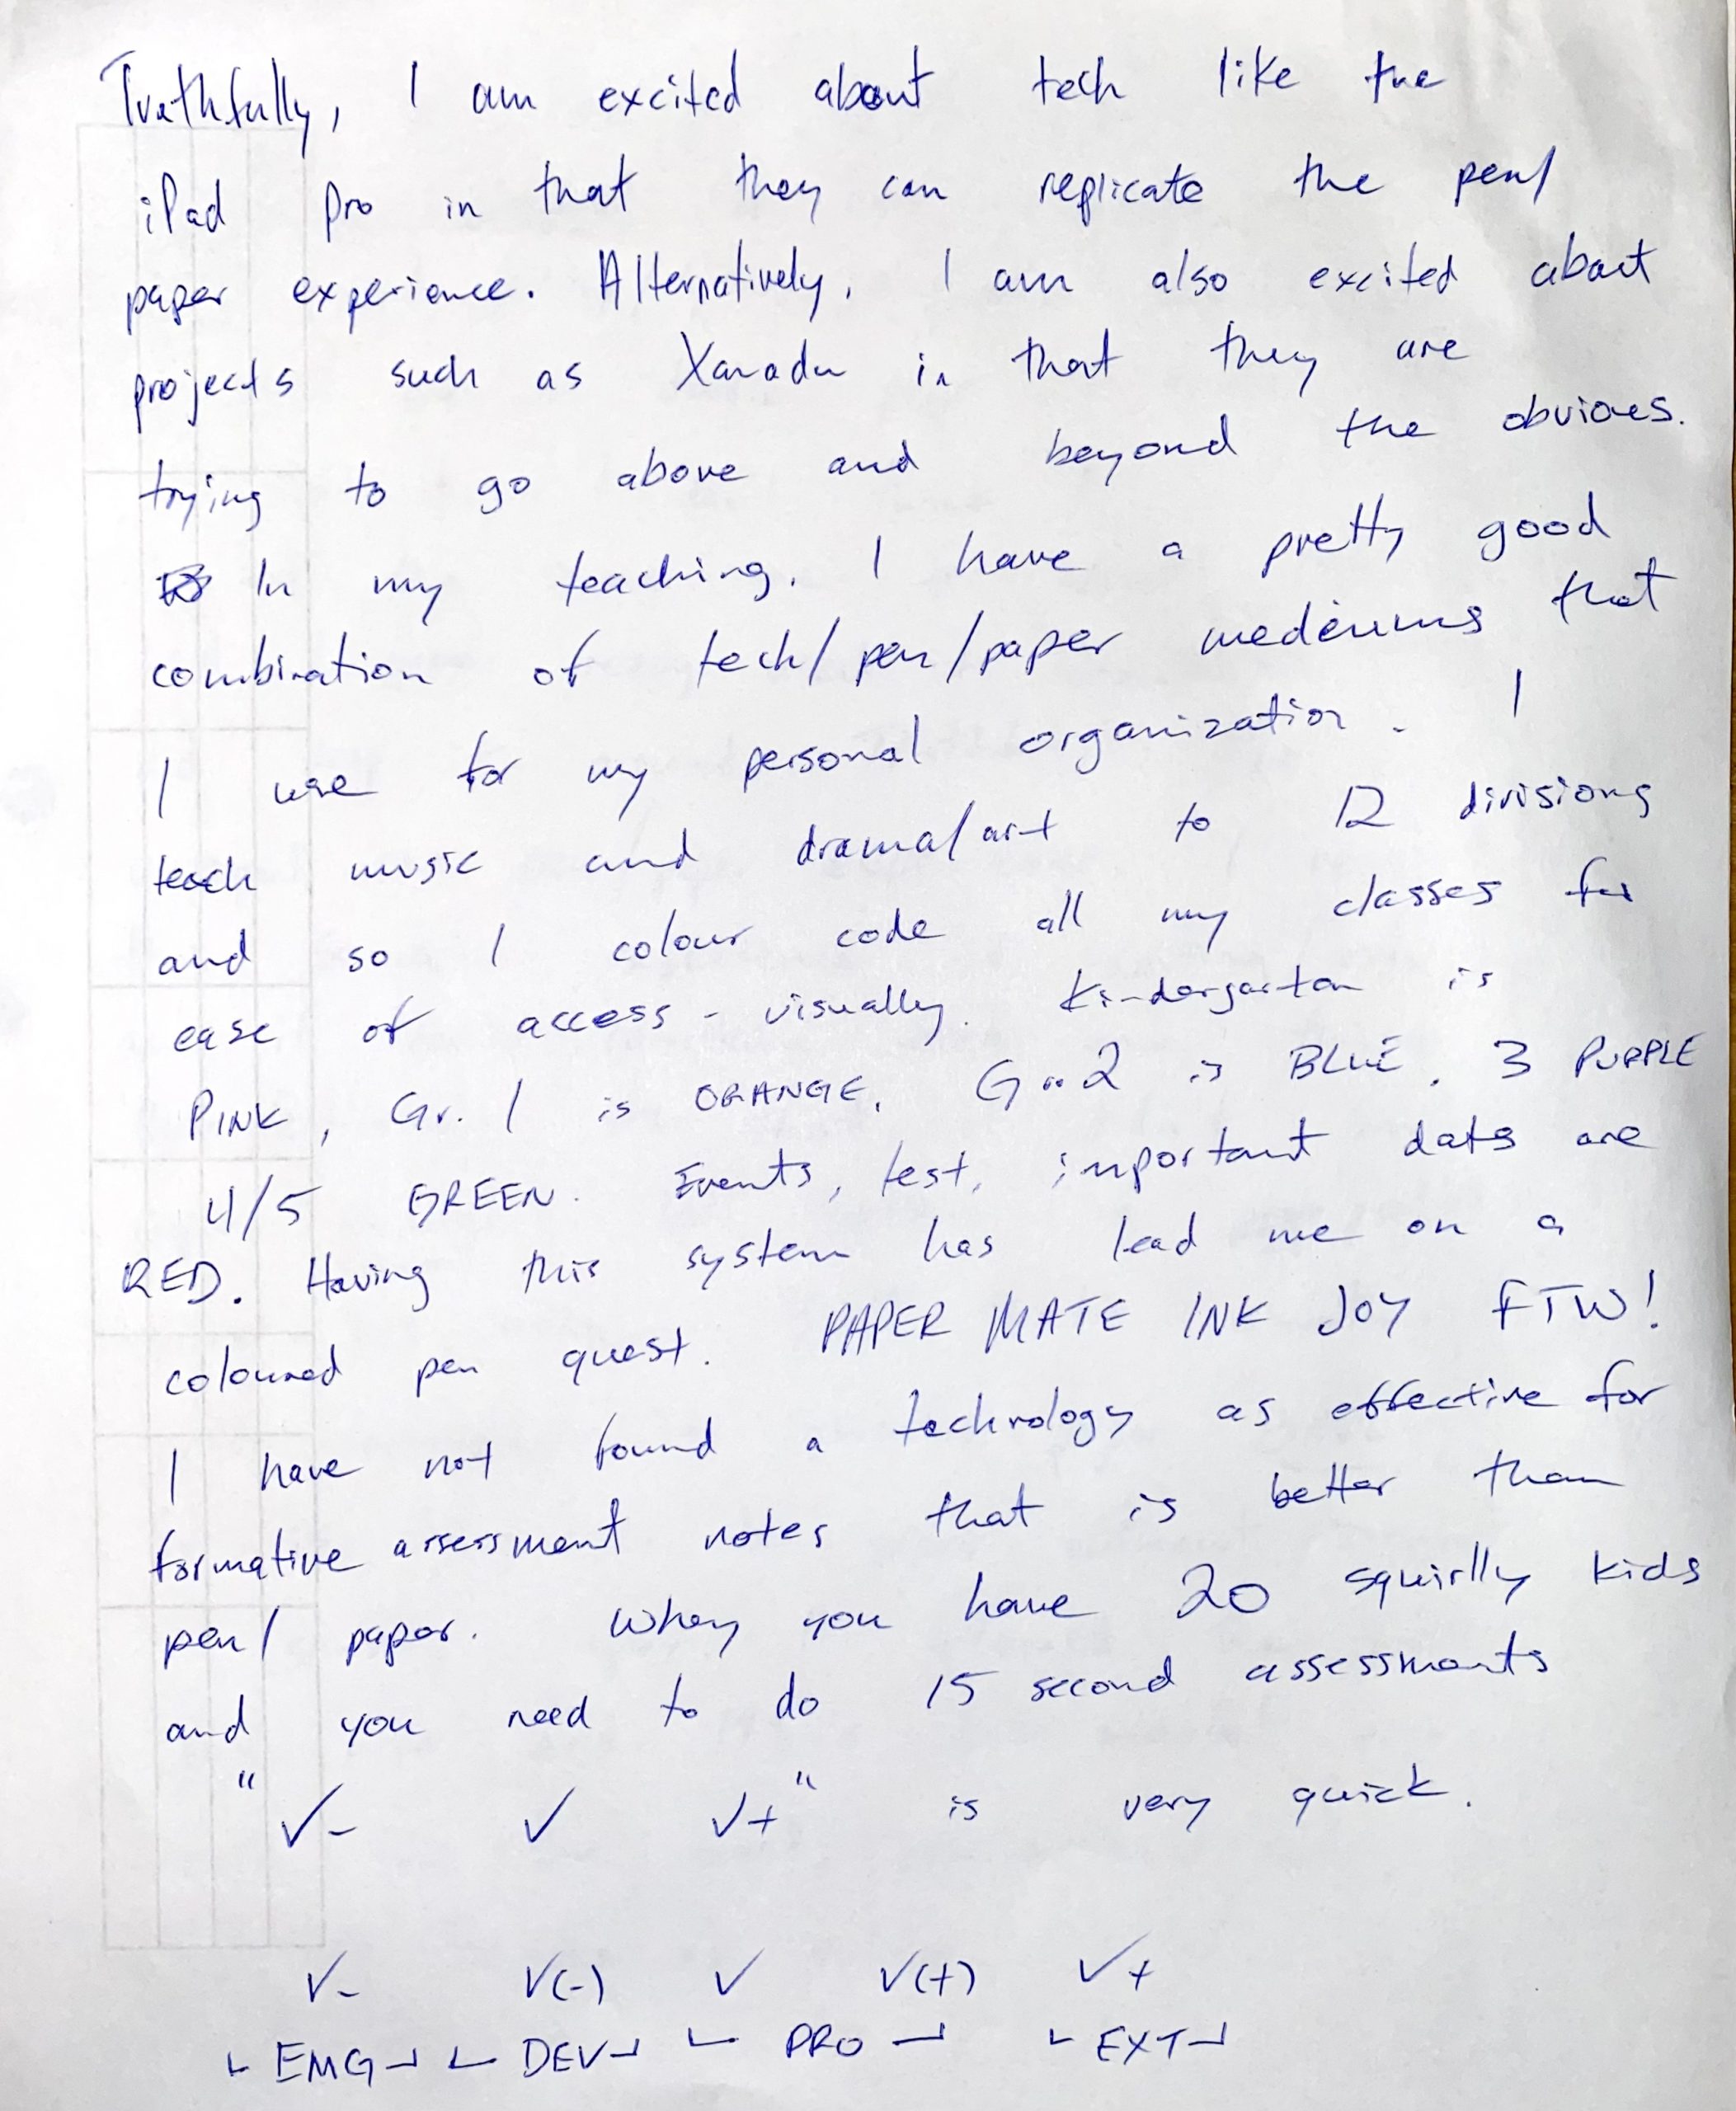 Truthfully, I am excited about tech like the
iPad Pro in that they can replicate the pen/
paper experience. Alternatively, I am also excited about
projects such as Xanadu in that they are
trying to go above and beyond the obvious.
In my teaching, I have a pretty good
combination of tech/pen/paper mediums that
I use for my personal organization. I
teach music and drama/art to 12 divisions
and so I colour code all my classes for
ease of access - visually. Kindergarten is
PINK, Gr. 1 is ORANGE, Gr. 2 is BLUE, 3 PURPLE
4/5 GREEN. Events, test, important dates are
RED. Having this system has lead me on a
coloured pen quest. PAPER MATE INK JOY FTW!
I have not found a technology as effective for
formative assessment notes that is better than
pen/ paper. When you have 20 squirlly kids
and you need to do 15 second assessments
"✓- ✓ ✓+" is very quick.
✓- ✓(-) ✓ ✓(+) ✓+
EMG DEV PRO EXT